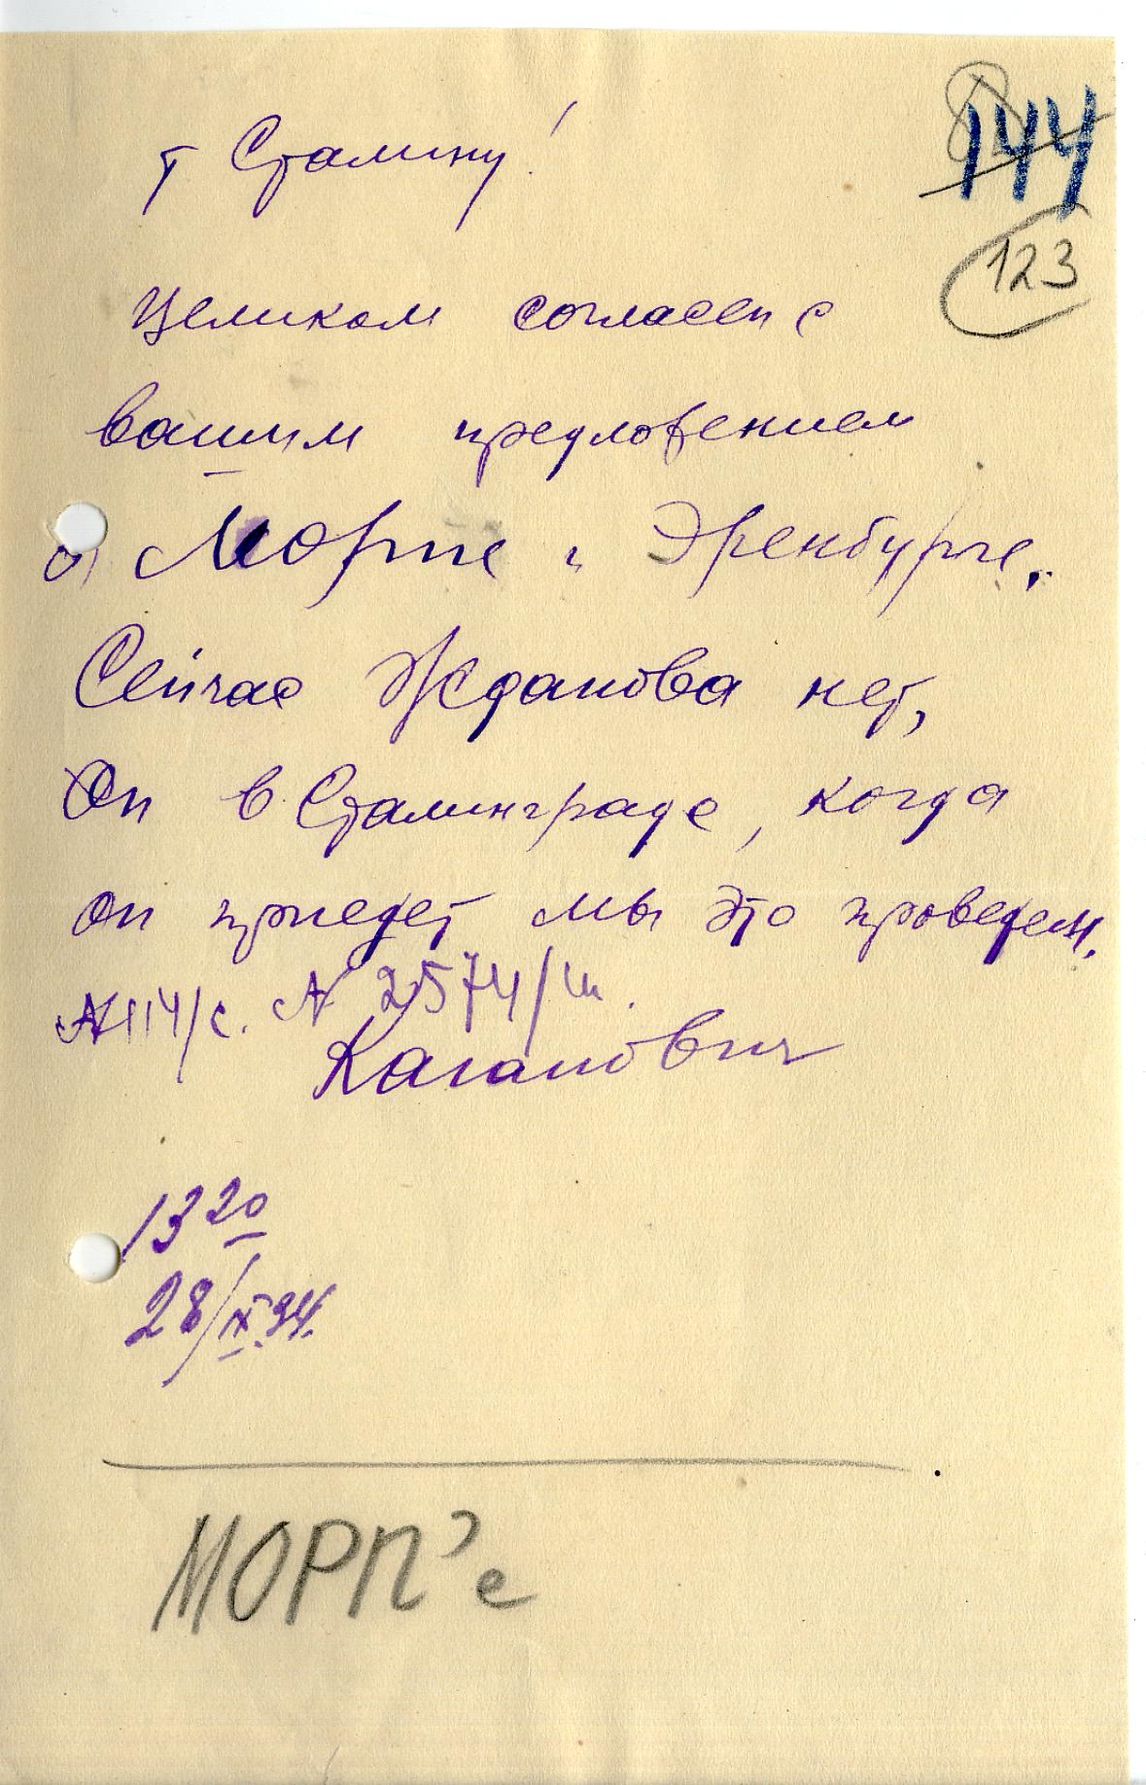 144
123
т Сталину!
Целиком согласен с
вашим предложением
о Морпе и Эренбурге.
Сейчас Жданова нет,
Он в Сталинграде, когда
он приедет мы это проведем.
N114/с. N 2574/ш.
Каганович
13 20
28/IX.34.
МОРП'е